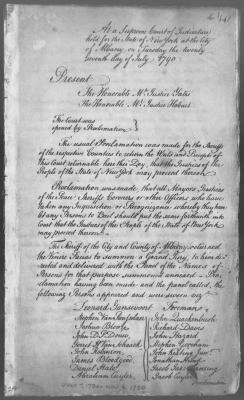 At a Supreme Court of Judicature
held for the State of New York at the City
of Albany on Tuesday the twenty
seventh day of July 1790
Present
The Honorable Mr. Justice Yates
The Honorable Mr. Justice Hobart
The Court was
opened by Proclamation
The usual Proclamation was made for the Sheriffs
of the respective Counties to return the Writs and Precepts of
this Court returnable here this Day, that the Justices of the
People of the State of New York may proceed thereon
Proclamation was made, that all Mayors Justices
of the Peace Sheriffs Coroners or other Officers who have
taken any Inquisition or Recognizance whereby they have
let any Persons to Bail should put the same forthwith into
Court that the Justices of the People of the State of New York
may proceed thereon
The Sheriff of the City and County of Albany returned
the Venire Facias to summon a Grand Jury to
and delivered with the Panel of the Names of
Persons for that purpose summoned annexed
Proclamation having been made and the panel called, the
following Persons appeared and were sworn
Leonard Gansevoort Foreman
Stephen Van Rensselaer John Quackenbush
Joshua Bloore Richard Downs
John D. P. Douw John Hazard
Stephen Gorham
John Robinson John Keating Junr.
James Bloodgood Jonathan
Daniel Hale Jacob
Abraham Cuyler Jacob Cuyler